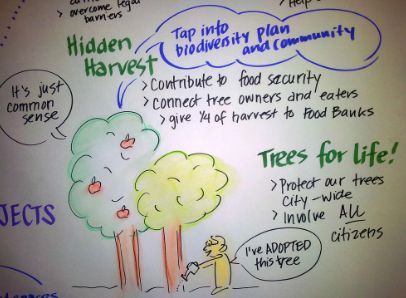 > overcome legal
barriers
> Help
Tap into
biodiversity plan
and community
Hidden
Harvest
It's just
common
sense
> Contribute to food security
> connect tree owners and eaters
> give 1/4 of harvest to Food Banks
Trees for life!
> Protect our trees
city-wide
> Involve ALL
citizens
JECTS
I've ADOPTED
this tree